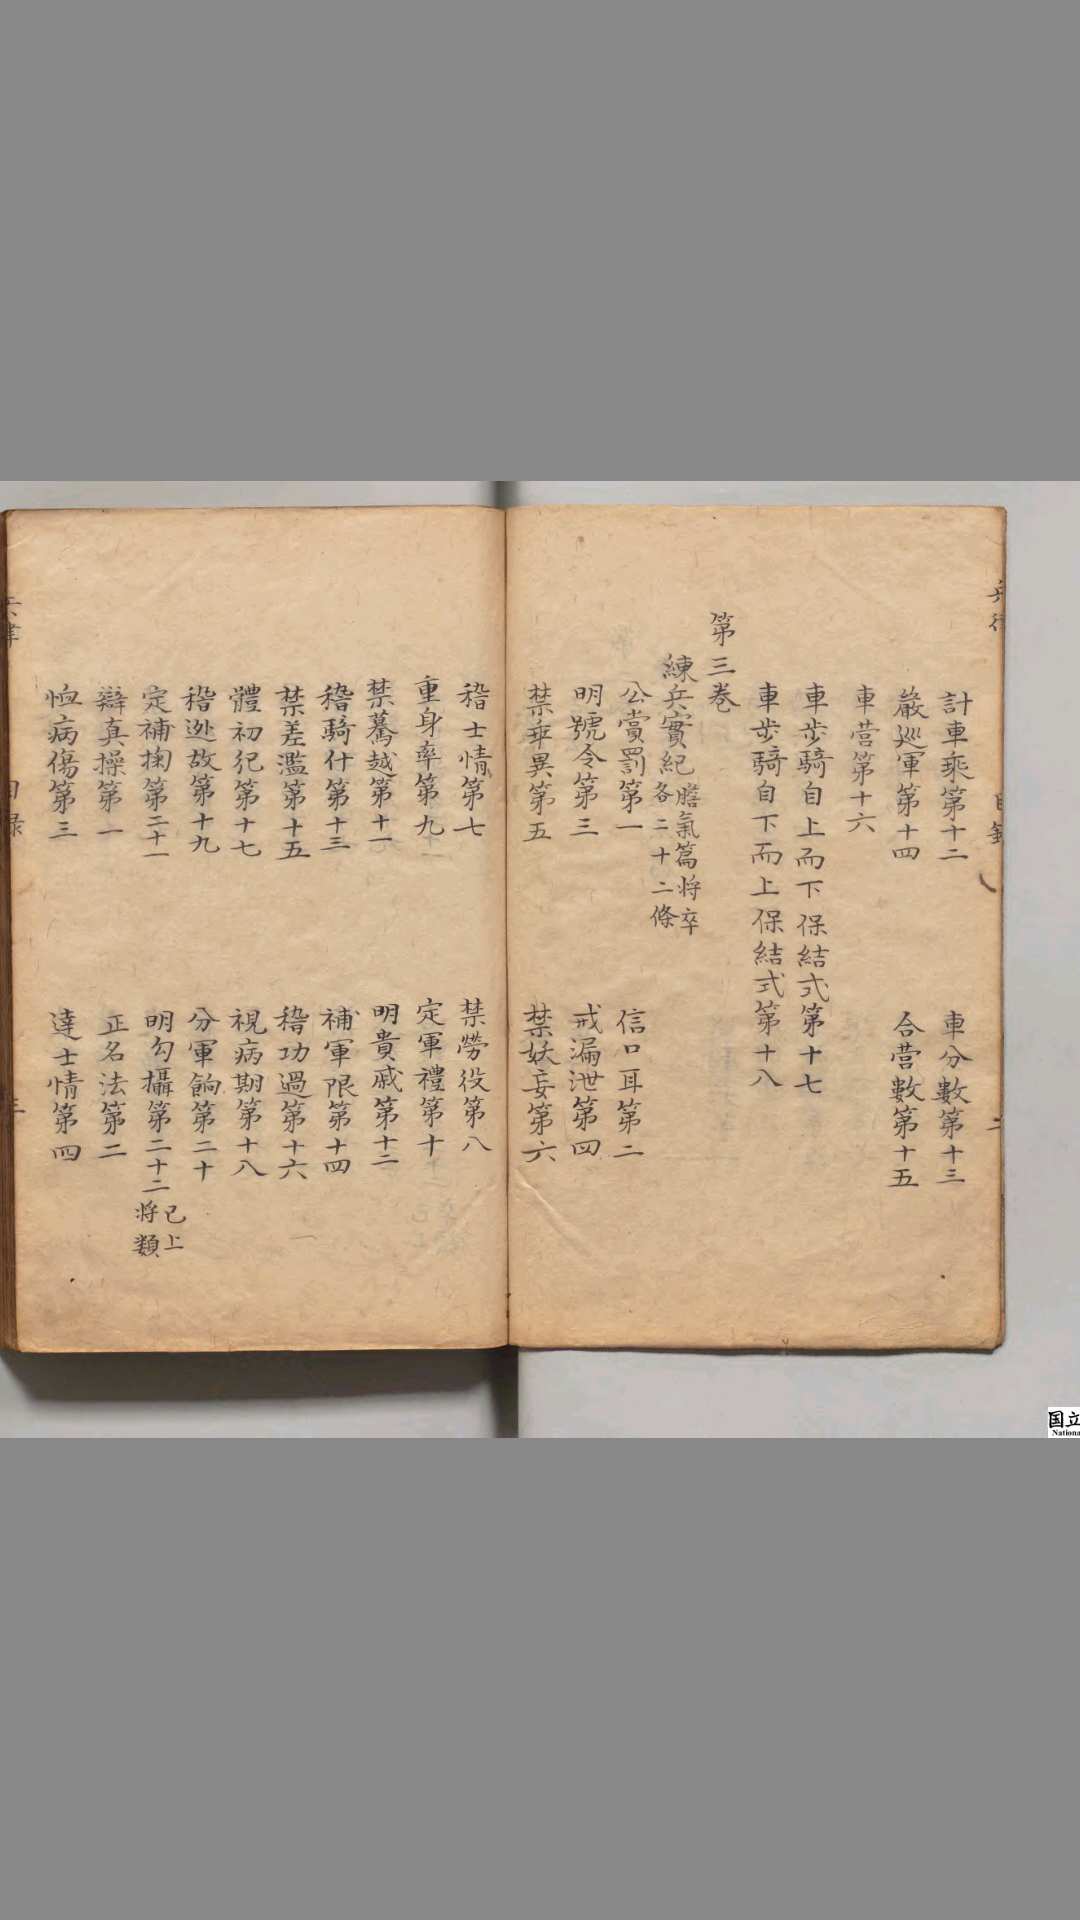 計車乘第十二　車分數第十三
嚴巡軍第十四　合营數第十五
車营第十六
車步騎自上而下保結式第十七
車步騎自下而上保結式第十八
第三卷
練兵實紀 膽氣篇將卒各二十二條
公賞罰第一　信口耳第二
明號令第三　戒漏泄第四
禁乖異第五　禁妖妄第六
稽士情第七　禁勞役第八
重身率第九　定軍禮第十
禁驀越第十一　明貴戚第十二
稽騎什第十三　補軍限第十四
禁差濫第十五　稽功過第十六
體初犯第十七　視病期第十八
稽逃故第十九　分軍餉第二十
定補掬第二十一　明勾攝第二十二 已上將類
辯真操第一　正名法第二
恤病傷第三　達士情第四
目録
国立
Nationa